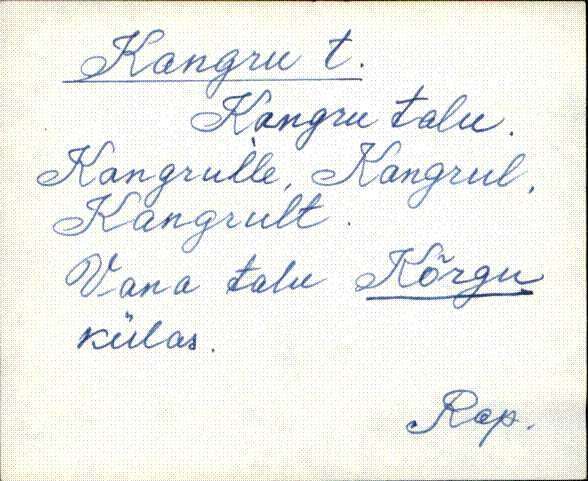 Kangru t.
Kangru talu.
Kangru`lle, Kangrul,
Kangrult.
Vana talu Kõrgu
külas.
Rap.